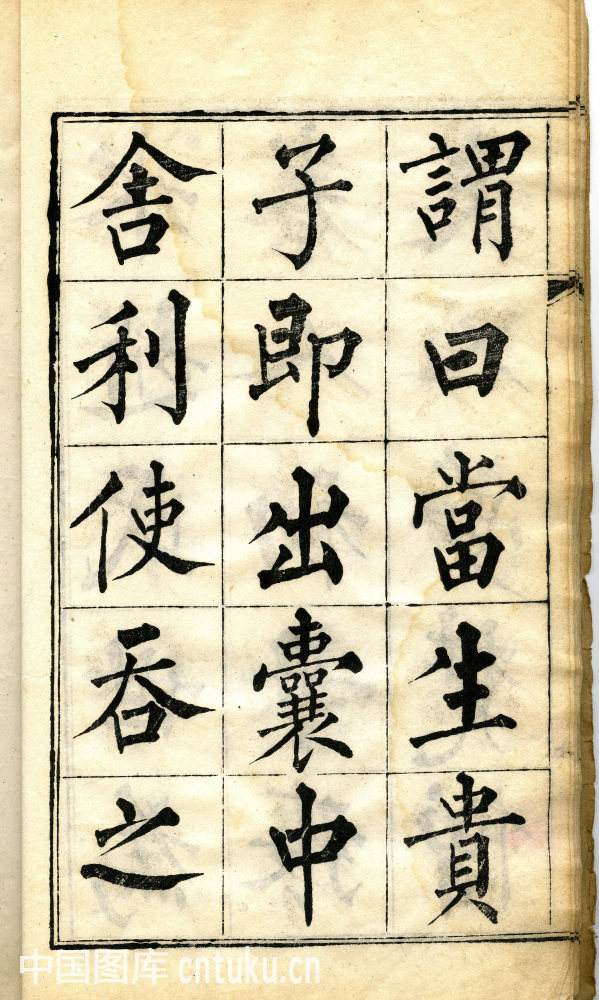 謂曰當生貴
子即出囊中
舎利使吞之
中国图库 cntuku.cn